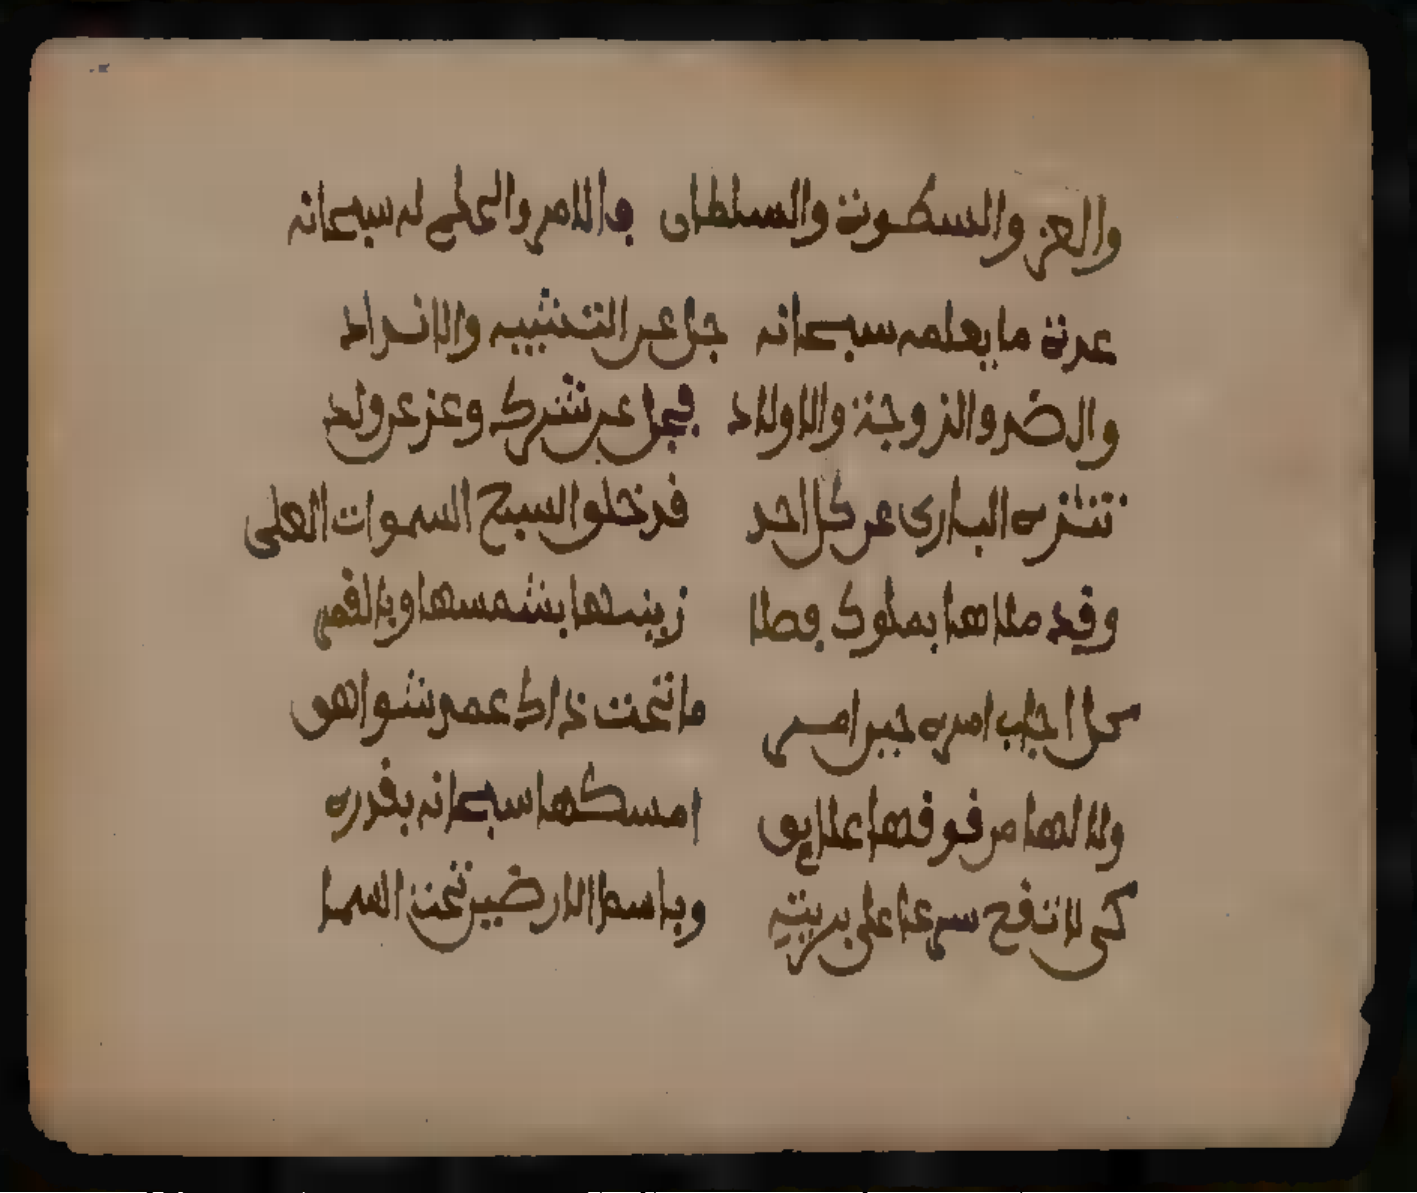 والعز والسطوة والسلطان والامر والحكم له سبحانه
عدة ما يعلمه سبحانه جل عن التشبيه والانداد
والضد والزوجة والاولاد فجل عن شرك وعز عن ولد
تنزه البارى عن كل احد قد خلق السبع السموات العلى
وقد ملاها بملوك فضلا زينها بشمسها وبالقمر
كل اجاب امره حين امر ما تحت
ولا لها من فوقها علايق امسكها سبحانه بقدره
كى لا تقع سرعا على بريته وباسط الارضين تحت السما